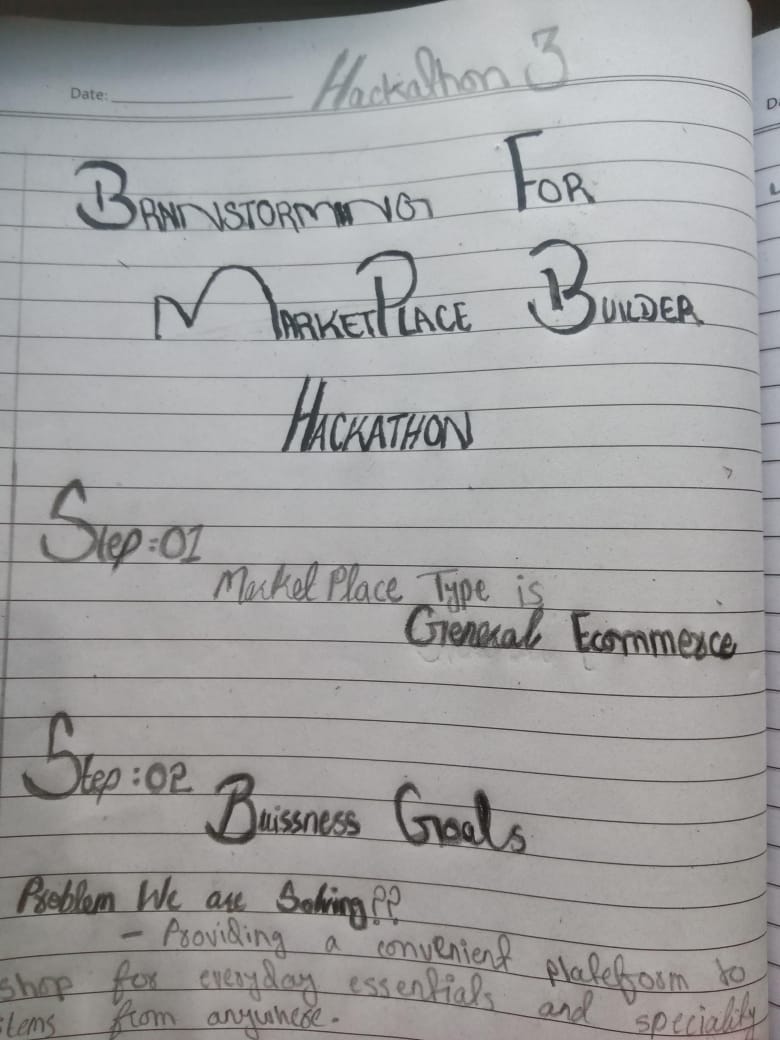 Date: Hackathon 3
BRAINSTORMING FOR
MARKETPLACE BUILDER
HACKATHON
Step:01
MarketPlace Type is
General Ecommerce
Step:02
Buissness Goals
Problem We are Solving??
- Providing a convenient plateform to
shop for everyday essentials and speciality
items from anywhere.